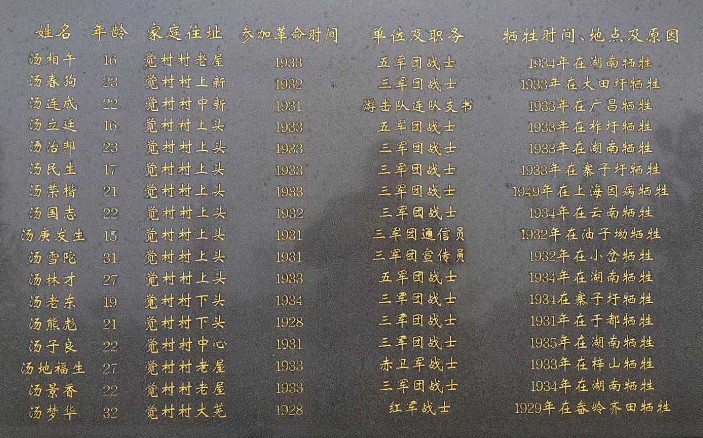 姓名 年龄 家庭住址 参加革命时间 单位及职务 牺牲时间、地点及原因
汤相午 16 觉村村老屋 1933 五军团战士 1934年在湖南牺牲
汤春狗 23 觉村村上新 1932 三军团战士 1933年在大田圩牺牲
汤连成 22 觉村村中新 1931 游击队连队支书 1933年在广昌牺牲
汤立廷 16 觉村村上头 1933 五军团战士 1933年在柞圩牺牲
汤治邦 23 觉村村上头 1933 三军团战士 1933年在湖南牺牲
汤民生 17 觉村村上头 1933 三军团战士 1933年在寨子圩牺牲
汤荣楷 21 觉村村上头 1933 三军团战士 1949年在上海因病牺牲
汤国志 22 觉村村上头 1932 三军团战士 1934年在云南牺牲
汤庚发生 15 觉村村上头 1931 三军团通信员 1932年在油子坳牺牲
汤雪陀 31 觉村村上头 1931 三军团宣传员 1932年在小岔牺牲
汤林才 27 觉村村上头 1933 五军团战士 1934年在湖南牺牲
汤老东 19 觉村村下头 1934 三军团战士 1934在寨子圩牺牲
汤熊彪 21 觉村村下头 1928 三军团战士 1931年在于都牺牲
汤子良 22 觉村村中心 1931 三军团战士 1935年在湖南牺牲
汤地福生 27 觉村村老屋 1933 赤卫军战士 1933年在梓山牺牲
汤景香 22 觉村村老屋 1933 三军团战士 1934年在湖南牺牲
汤梦华 32 觉村村大芜 1928 红军战士 1929年在畚岭齐田牺牲